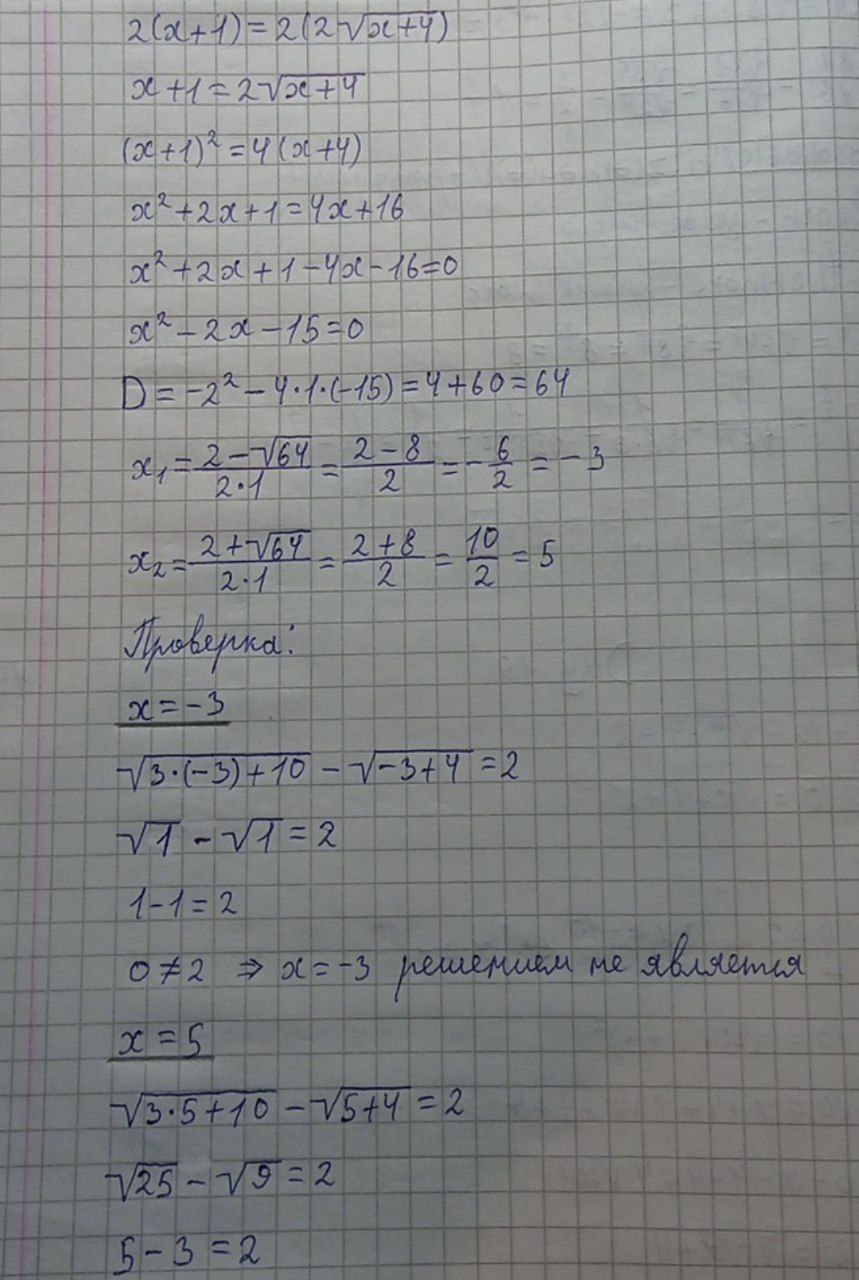 2(x+1)=2(2√(x+4))
x+1=2√(x+4)
(x+1)²=4(x+4)
x²+2x+1=4x+16
x²+2x+1-4x-16=0
x²-2x-15=0
D=-2²-4·1·(-15)=4+60=64
x₁=(2-√64)/(2·1)=(2-8)/2=-6/2=-3
x₂=(2+√64)/(2·1)=(2+8)/2=10/2=5
Проверка:
x=-3
√(3·(-3)+10)-√(-3+4)=2
√1-√1=2
1-1=2
0≠2 ⇒ x=-3 решением не является
x=5
√(3·5+10)-√(5+4)=2
√25-√9=2
5-3=2